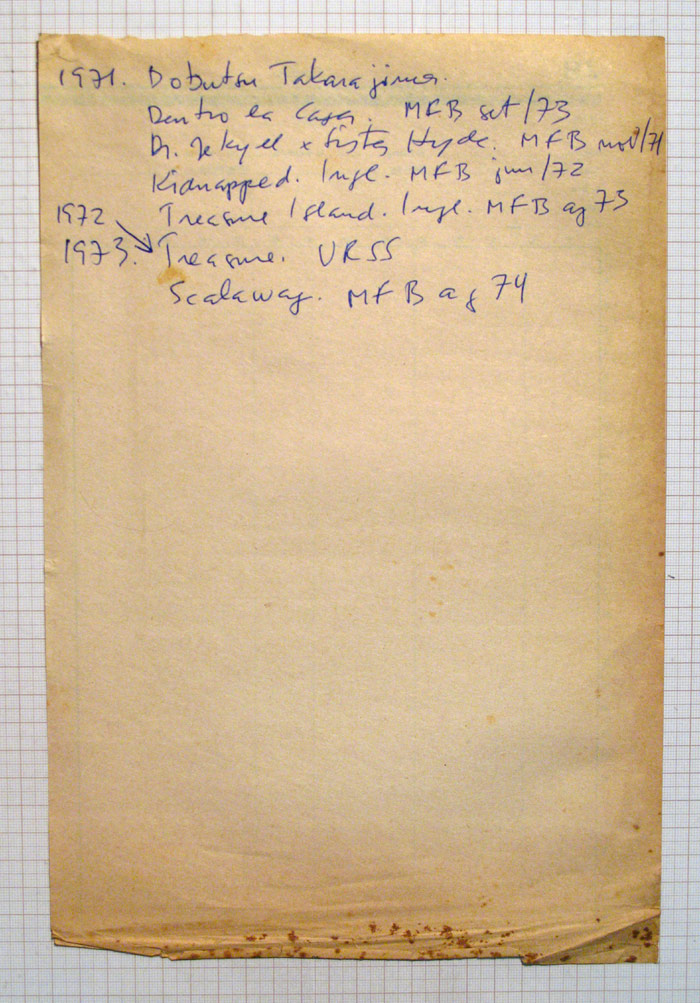 1971. Dobutsu Takarajima.
Dentro la Casa. MFB set/73
Dr. Jekyll x Sister Hyde. MFB nov/71
Kidnapped. Ingl. MFB jun/72
1972 Treasure Island. Ingl. MFB ag 73
1973. Treasure. URSS
Scalawag. MFB ag 74